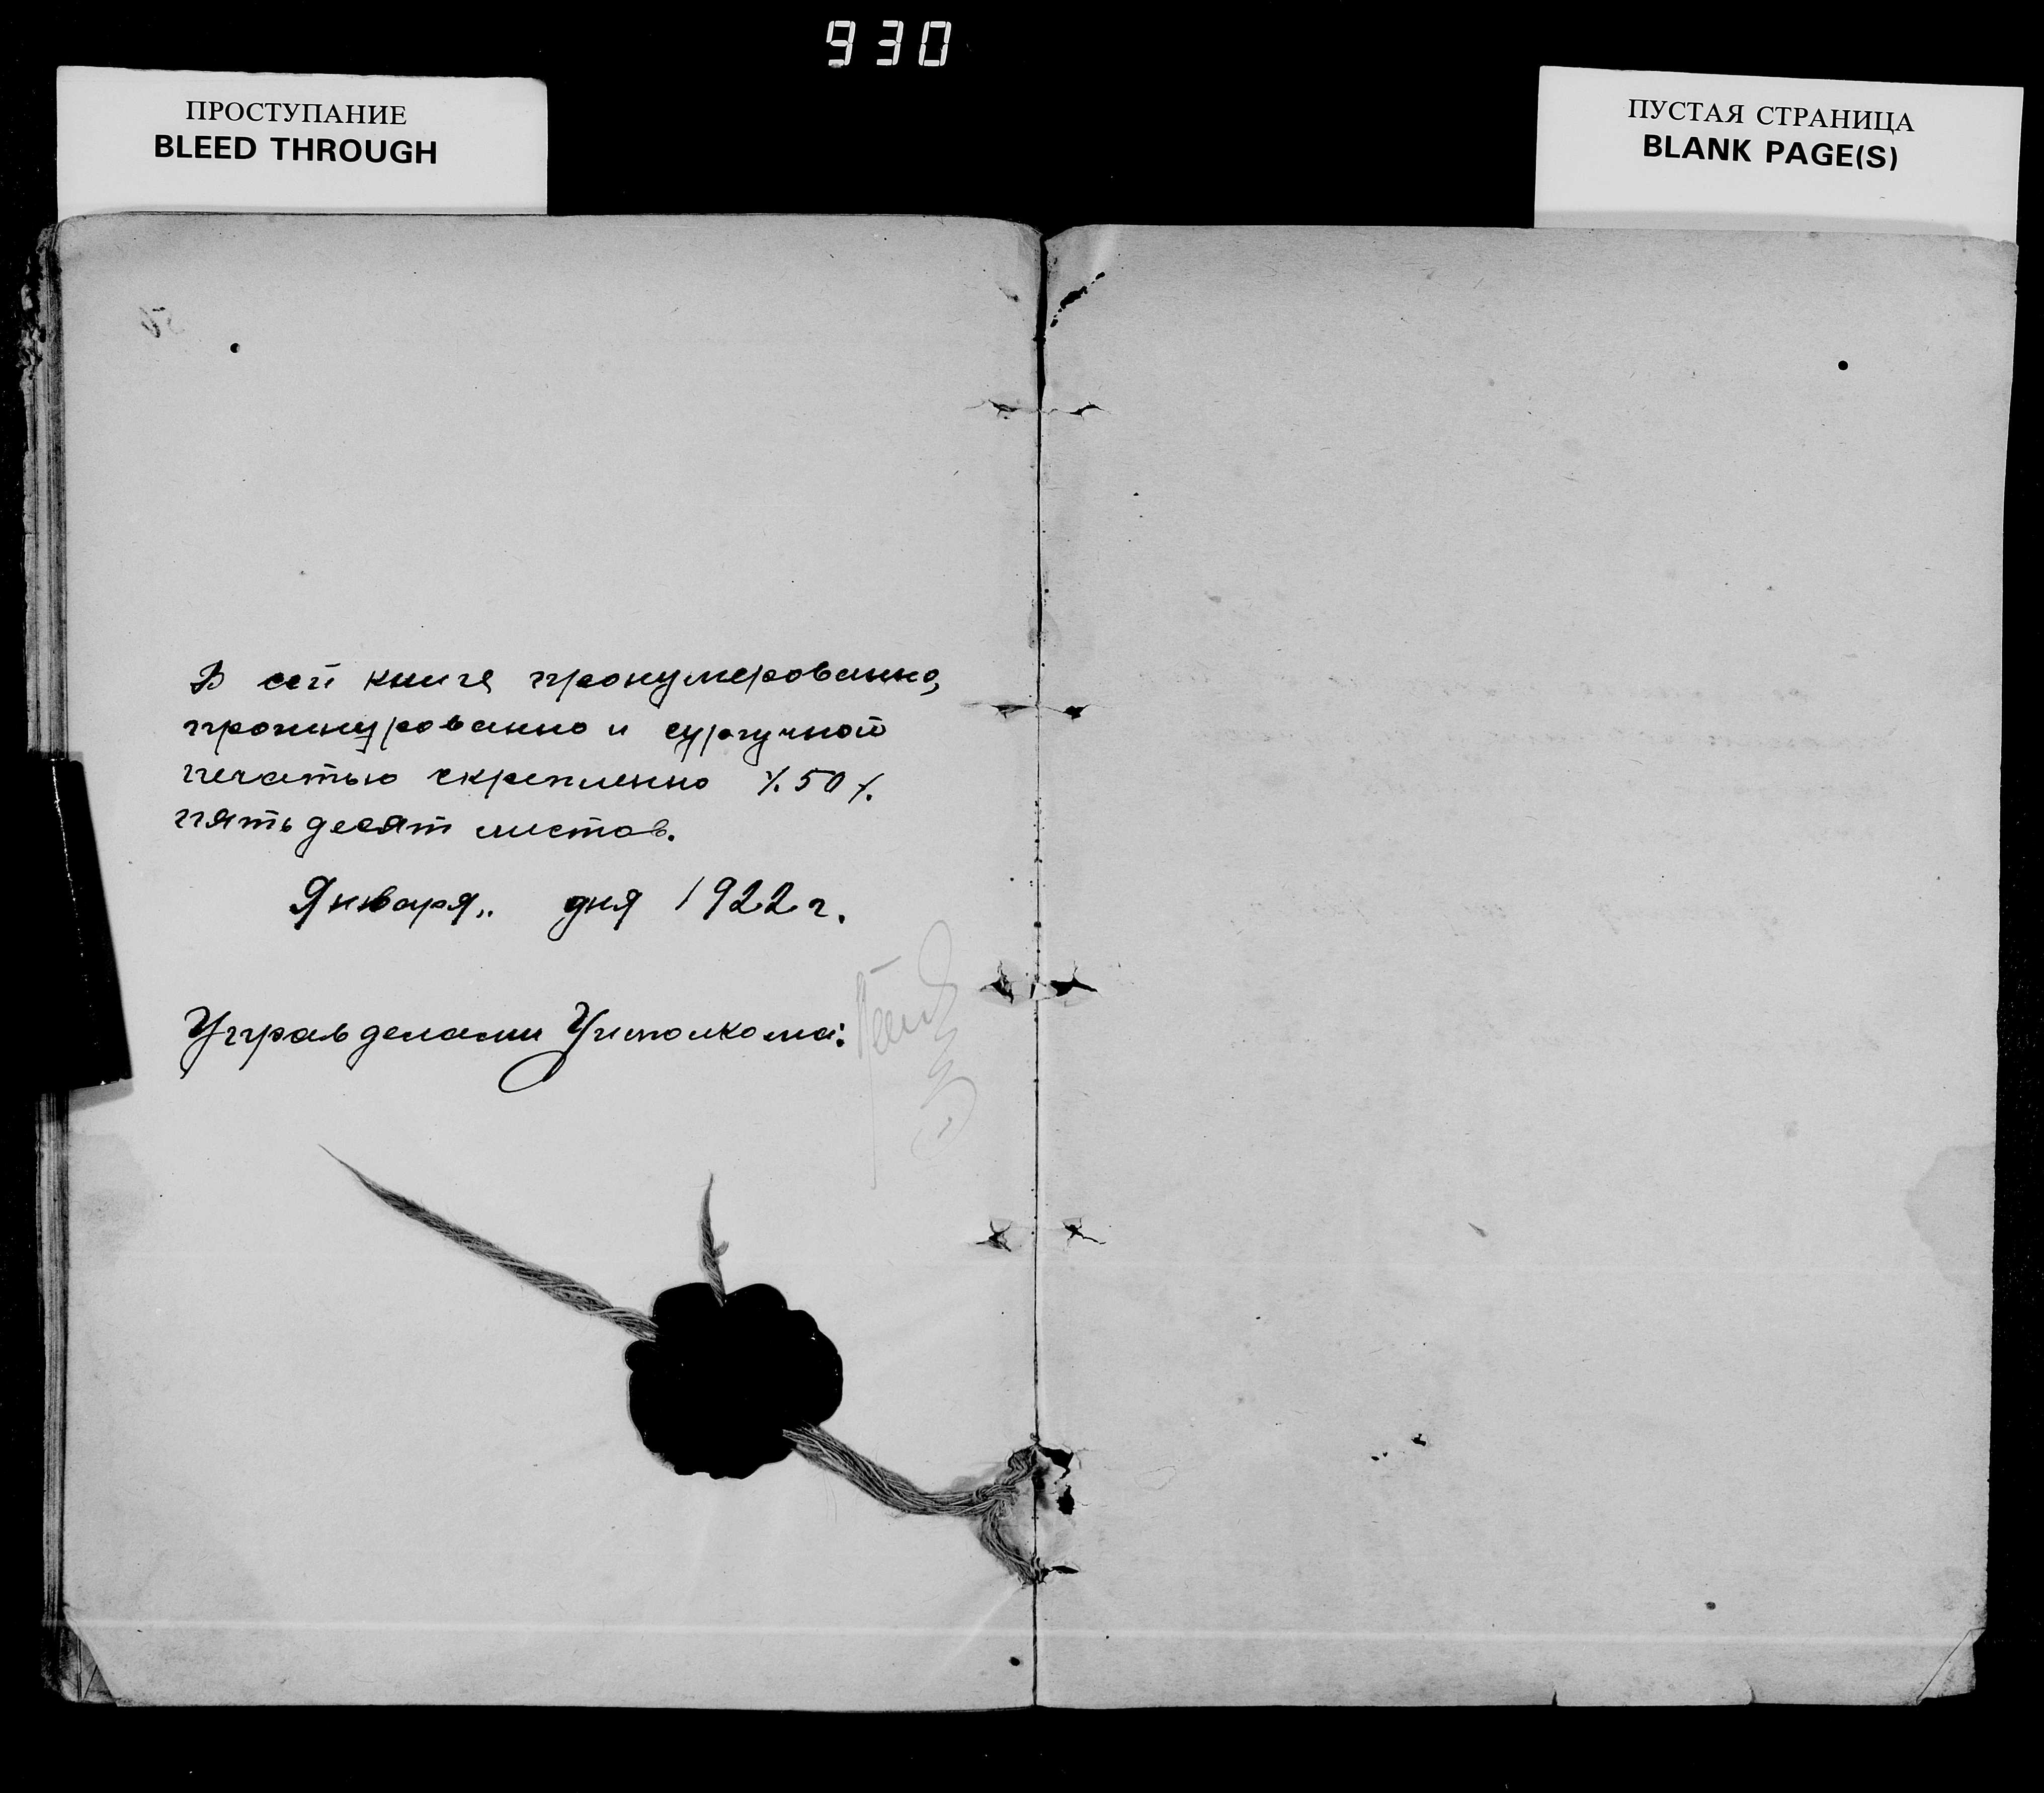 930
ПРОСТУПАНИЕ
BLEED THROUGH
ПУСТАЯ СТРАНИЦА
BLANK PAGE(S)
В сей книге пронумерованно,
прошнурованно и сургучной
печатью скрепленно /.50/.
пятьдесят листов.
Января„ дня 1922 г.
Управделами Уисполкома: